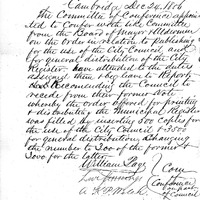 Cambridge Dec 24, 1856
The Committee of Conference appoin-
ted to Confer with like Committee
from the Board of Mayor & Aldermen
on the Order in relation to publishing
for the use of the City Council and
for general distribution of the City
Register have attended to the duties
assigned them & beg leave to Report,
recommending the Council to
recede from their former vote
whereby the order offered for printing
& distributing the Municipal Register
was filled by inserting 500 Copies for
the use of the City Council & 3000
for general distribution & changing
the number to 300 of the former &
3000 for the latter.
William Page
Com
of
Conference
Council